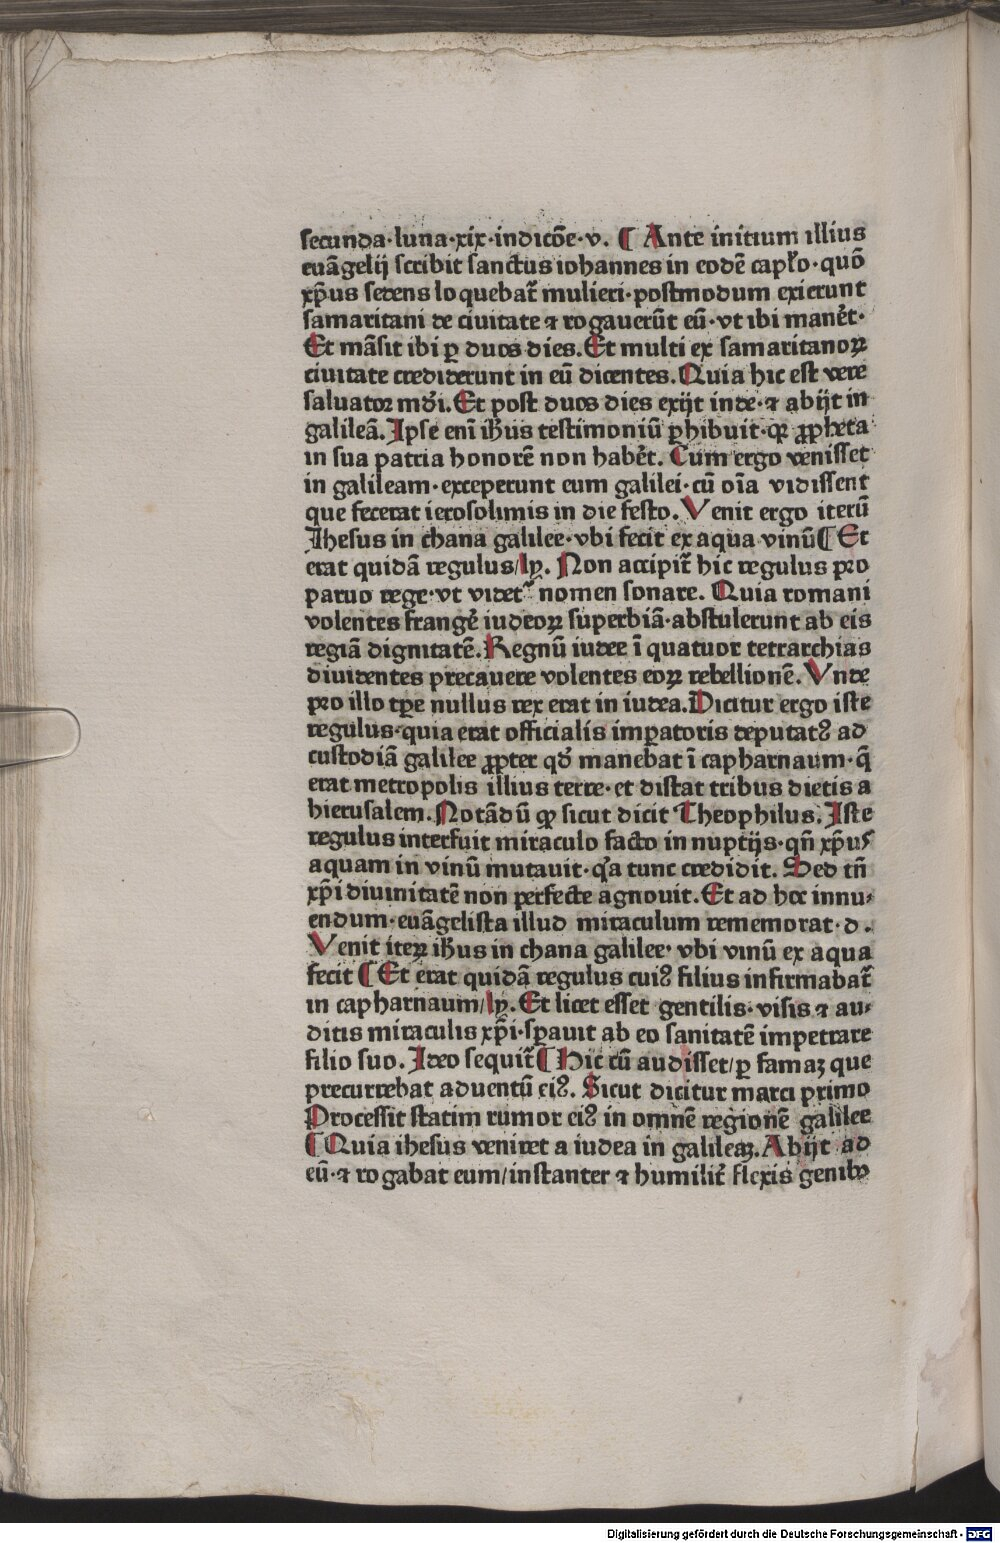 secunda·luna·xix·indicōe·v. ¶ Ante initium illius
euāgelij scribit sanctus iohannes in eodē capło·quō
xp̄us sedens loquebat᷑ mulieri·postmodum exierunt
samaritani de ciuitate ⁊ rogauerūt eū·vt ibi manēt·
Et māsit ibi ꝑ duos dies. Et multi ex samaritanoꝝ
ciuitate crediderunt in eū dicentes. Quia hic est vere
saluator mūdi. Et post duos dies exijt inde·⁊ abijt in
galileā. Ipse eni ih̄us testimoniū ꝑhibuit·qꝛ ꝓpheta
in sua patria honorē non habēt. Cum ergo venisset
in galileam·exceperunt eum galilei·cū oīa vidissent
que fecerat ierosolimis in die festo. Venit ergo iterū
Jhesus in chana galilee·vbi fecit ex aqua vinū ¶ Et
erat quidā regulus/lꝫ. Non accipit᷑ hic regulus pro
paruo rege·vt videt᷑ nomen sonare. Quia romani
volentes frangē iudeoꝝ superbiā·abstulerunt ab eis
regiā dignitatē. Regnū iudee ī quatuor tetrarchias
diuidentes precauere volentes eoꝝ rebellionē. Vnde
pro illo tꝑe nullus rex erat in iudea. Dicitur ergo iste
regulus·quia erat officialis imꝑatoris deputatꝰ ad
custodiā galilee ꝓpter qd̄ manebat ī capharnaum·q̄
erat metropolis illius terre·et distat tribus dietis a
hierusalem. Notādū ꝙ sicut dicit Theophilus. Iste
regulus interfuit miraculo facto in nuptijs·qn̄ xp̄us
aquam in vinū mutauit·q̄a tunc credidit. Sed tn̄
xp̄i diuinitatē non perfecte agnouit. Et ad hoc innu⸗
endum·euāgelista illud miraculum rememorat·d.
Venit iteꝝ ih̄us in chana galilee·vbi vinū ex aqua
fecit ¶ Et erat quidā regulus cuiꝰ filius infirmabat᷑
in capharnaum/lꝫ. Et licet esset gentilis·visis ⁊ au⸗
ditis miraculis xp̄i·sꝑauit ab eo sanitatē impetrare
filio suo. Ideo sequit᷑ ¶ Hic cū audisset/ꝑ famaꝫ que
precurrebat aduentū eiꝰ. Sicut dicitur marci primo
Processit statim rumor eiꝰ in omnē regionē galilee
¶ Quia ihesus veniret a iudea in galileaꝫ. Abijt ad
eū·⁊ rogabat eum/instanter ⁊ humilit᷑ flexis genibꝰ
Digitalisierung gefördert durch die Deutsche Forschungsgemeinschaft - DFG